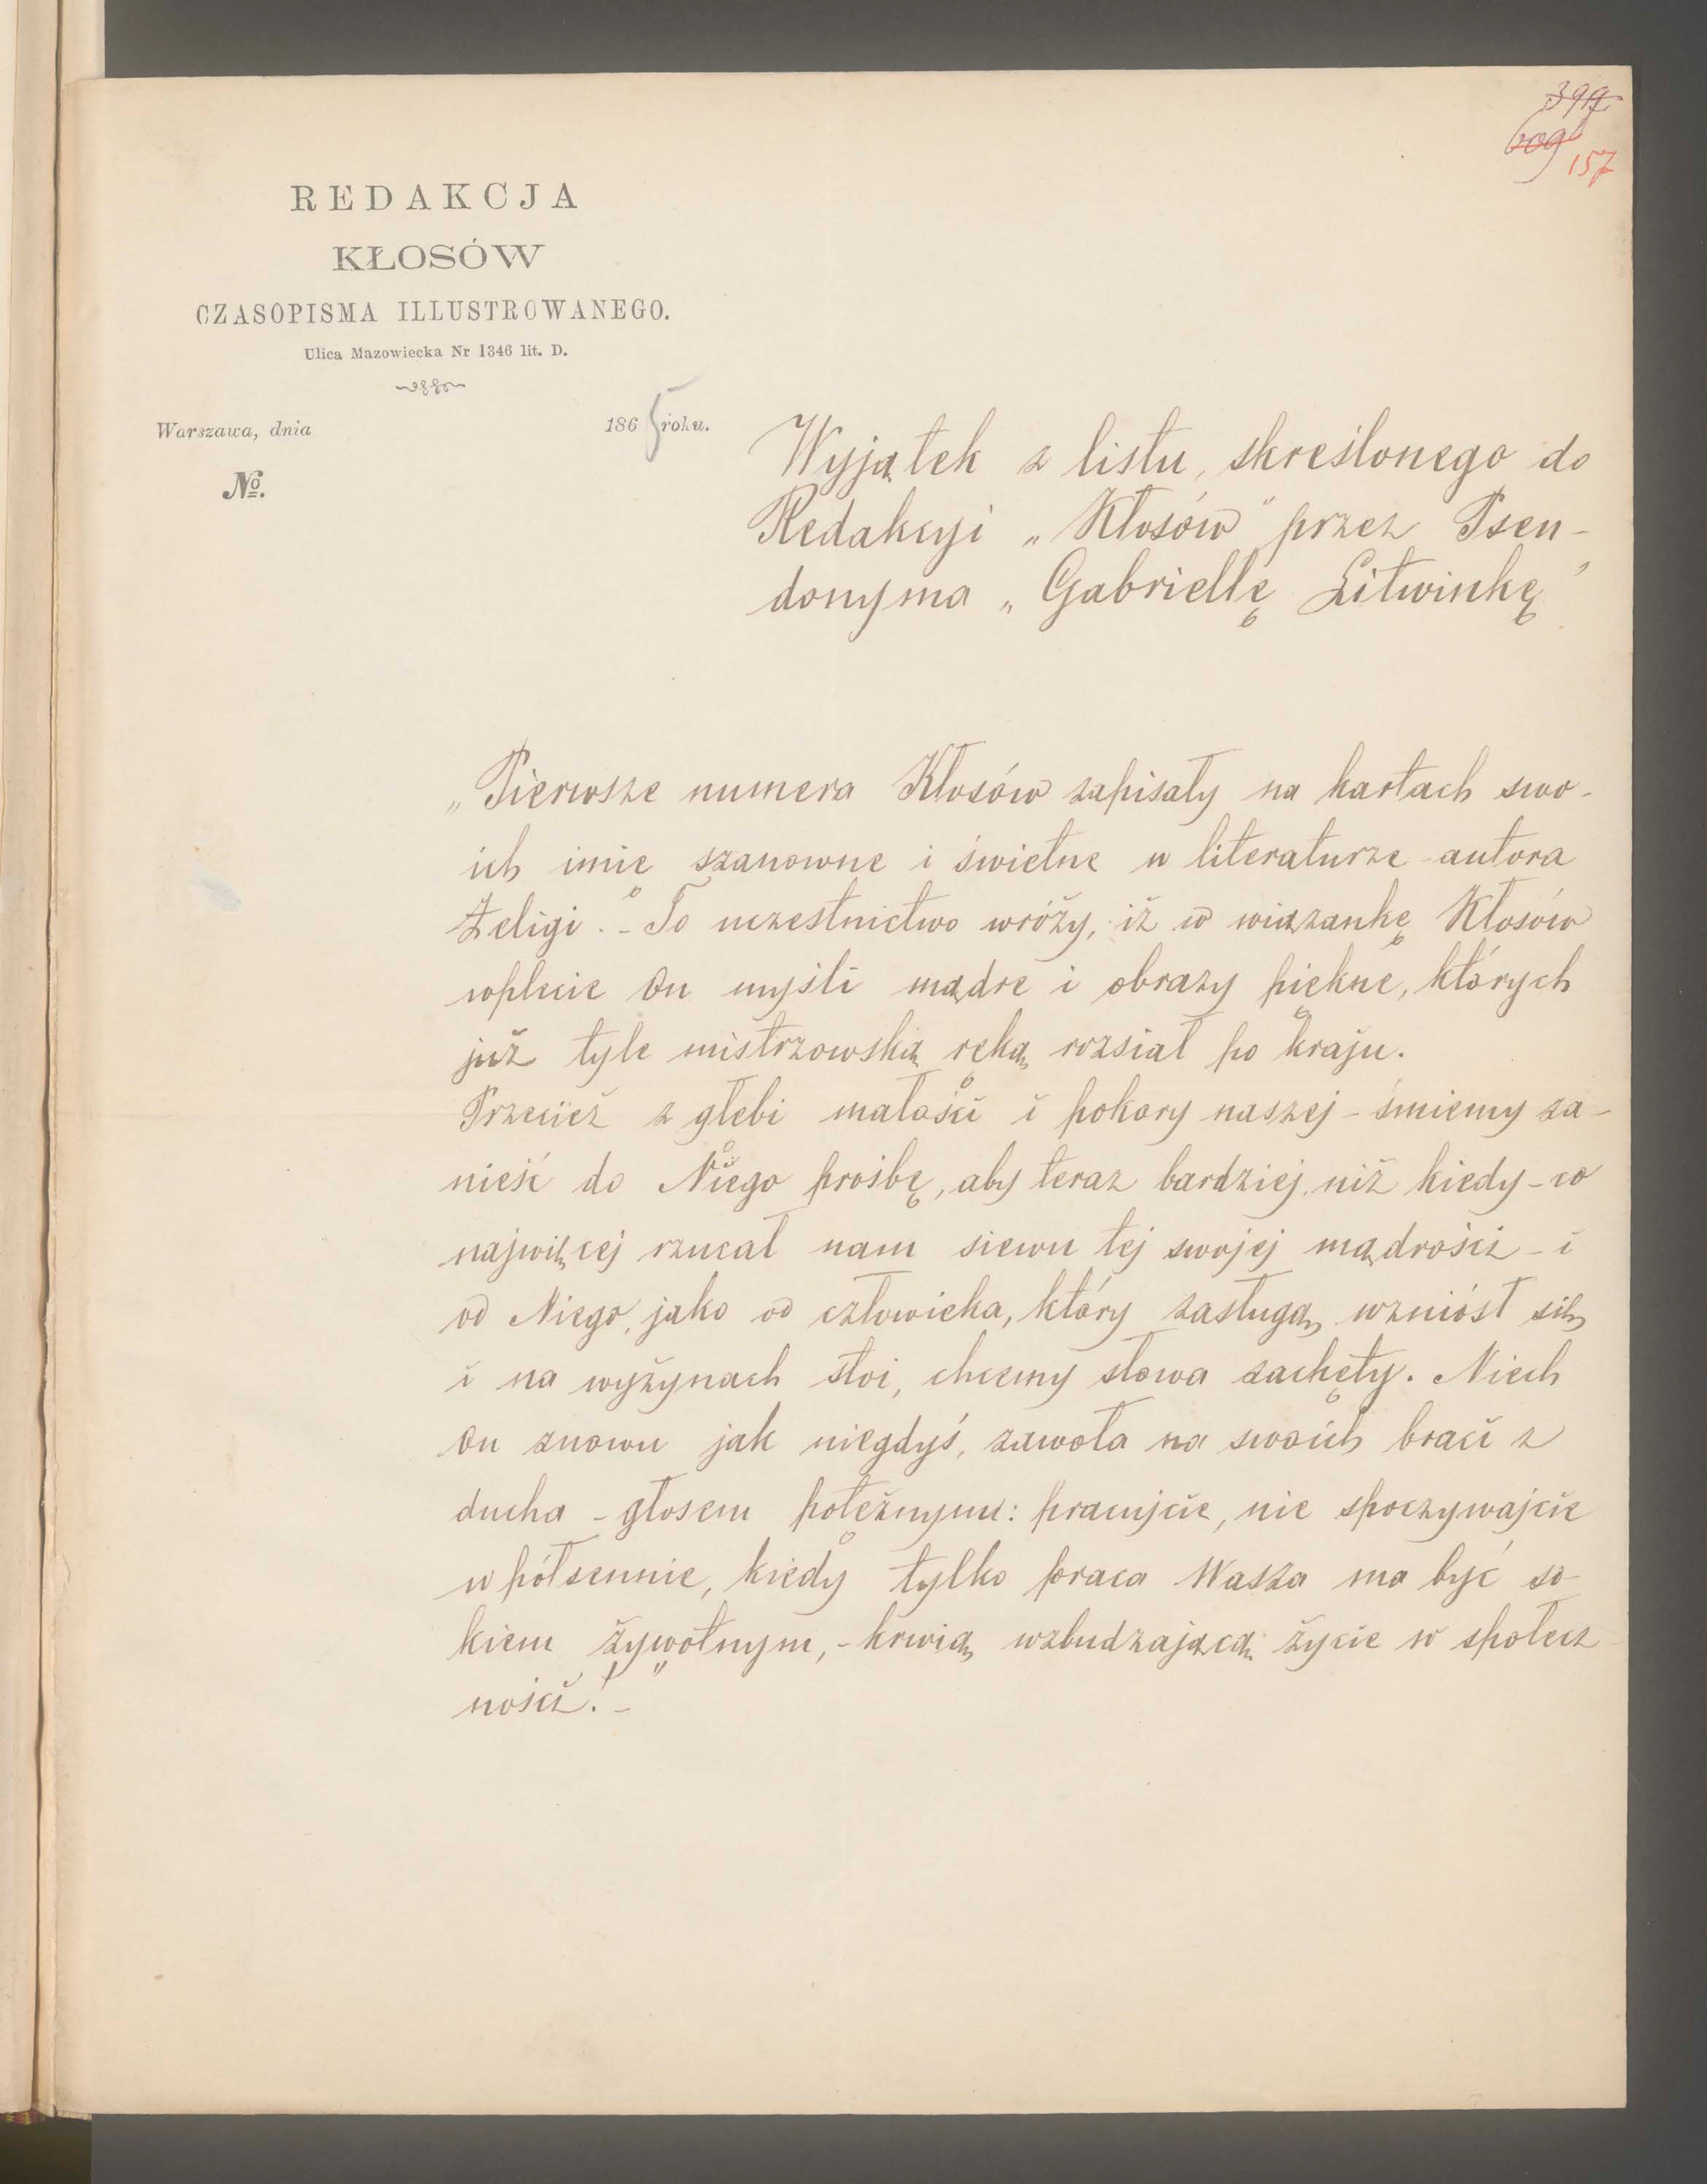 397
609
157
REDAKCJA
KŁOSÓW
CZASOPISMA ILLUSTROWANEGO.
Ulica Mazowiecka Nr 1346 lit. D.
Warszawa, dnia 1865 roku.
No.
Wyjątek z listu, skreślonego do
Redakcyi „Kłosów" przez Pseu-
donyma „Gabriellę Litwinkę"
„Pierwsze numera Kłosów zapisały na kartach swo-
ich imie szanowne i świetne w literaturze autora
Żeligi. – To uczestnictwo wróży, iż w wiązankę Kłosów
wplecie On myśli mądre i obrazy piękne, których
już tyle mistrzowską ręką rozsiał po kraju.
Przecież z głębi małości i pokory naszej – śmiemy za-
nieść do Niego prośbę, aby teraz bardziej niż kiedy – co
najwięcej rzucał nam siewu tej swojej mądrości – i
od Niego, jako od człowieka, który zasługą wzniósł się
i na wyżynach stoi, chcemy słowa zachęty. Niech
On znowu jak niegdyś, zawoła na swoich braci z
ducha – głosem potężnym: pracujcie, nie spoczywajcie
w półsennie, kiedy tylko praca Wasza ma być so-
kiem żywotnym, – krwią wzbudzającą życie w społecz-
ności!" –